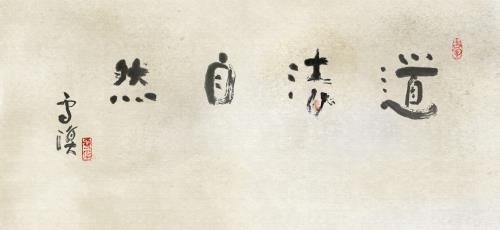 道法自然
雪漠